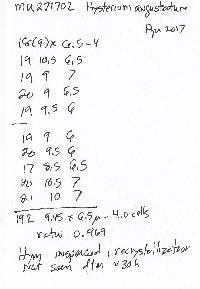 MU 271702 Hysterium angustatum
Apr 2017
18(9) x 6.5-4
19 10.5 6.5
19 9 7
20 9 6.5
19 9.5 6
19 9 6
20 9.5 6
17 8.5 6.5
20 10.5 7
21 10 7
19.2 9.45 x 6.5µ - 4.0 cells
ratio 0.469
Hym inspersed, recrystallization
not seen after ~30 h